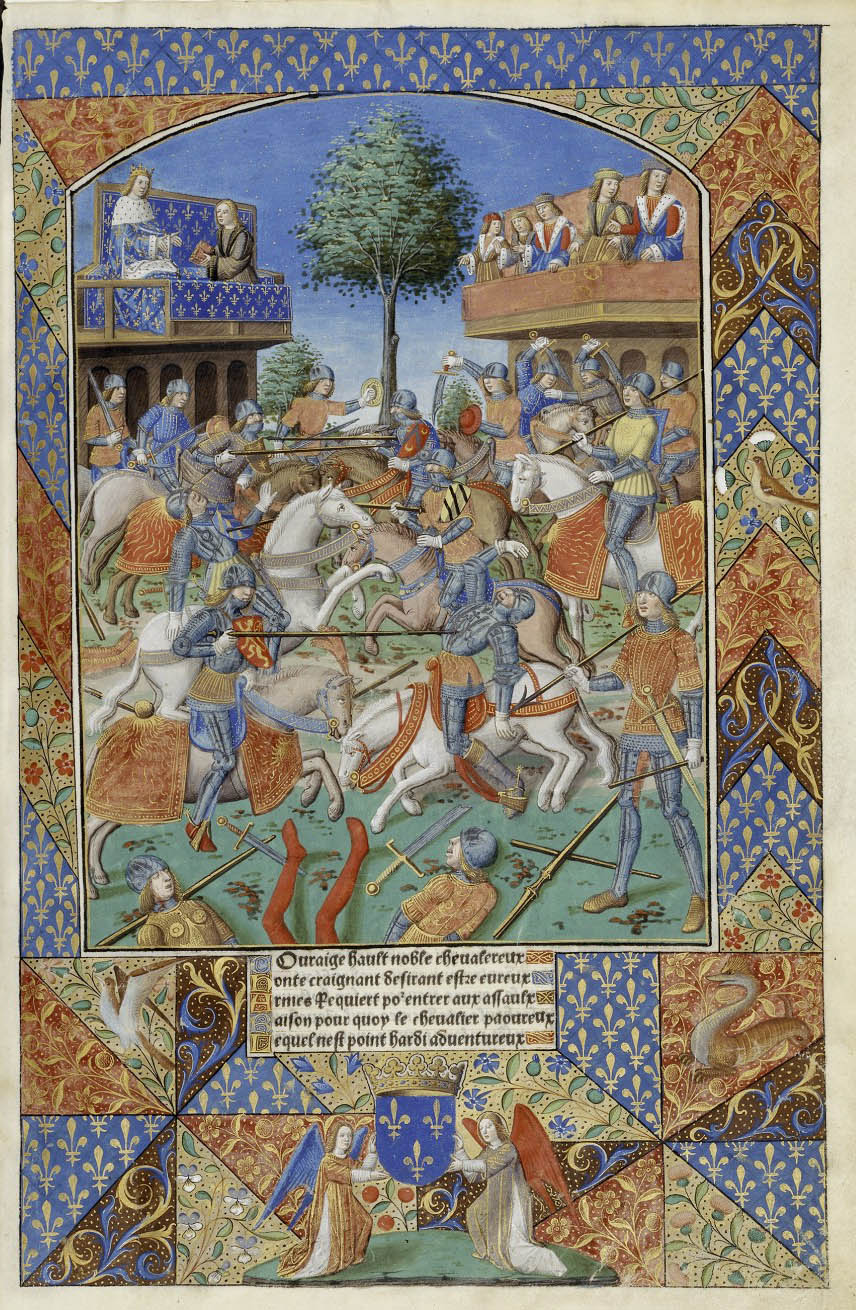 COuraige hault noble cheualereux
Honte craignant desirant estre eureux
Armes Requiert po² entrer aux assaulx
Raison pour quoy le cheualier paoureux
Lequel nest point hardi aduentureux